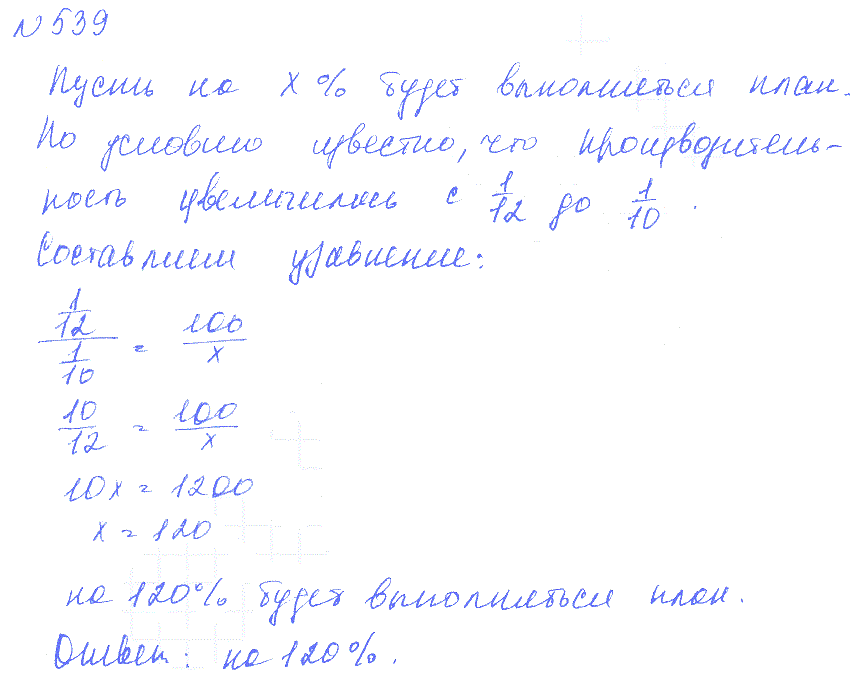 №539
Пусть на x % будет выполняться план.
По условию известно, что производитель-
ность увеличилась с 1/12 до 1/10.
Составляем уравнение:
(1/12)/(1/10) = 100/x
10/12 = 100/x
10x = 1200
x = 120
на 120% будет выполняться план.
Ответ: на 120%.